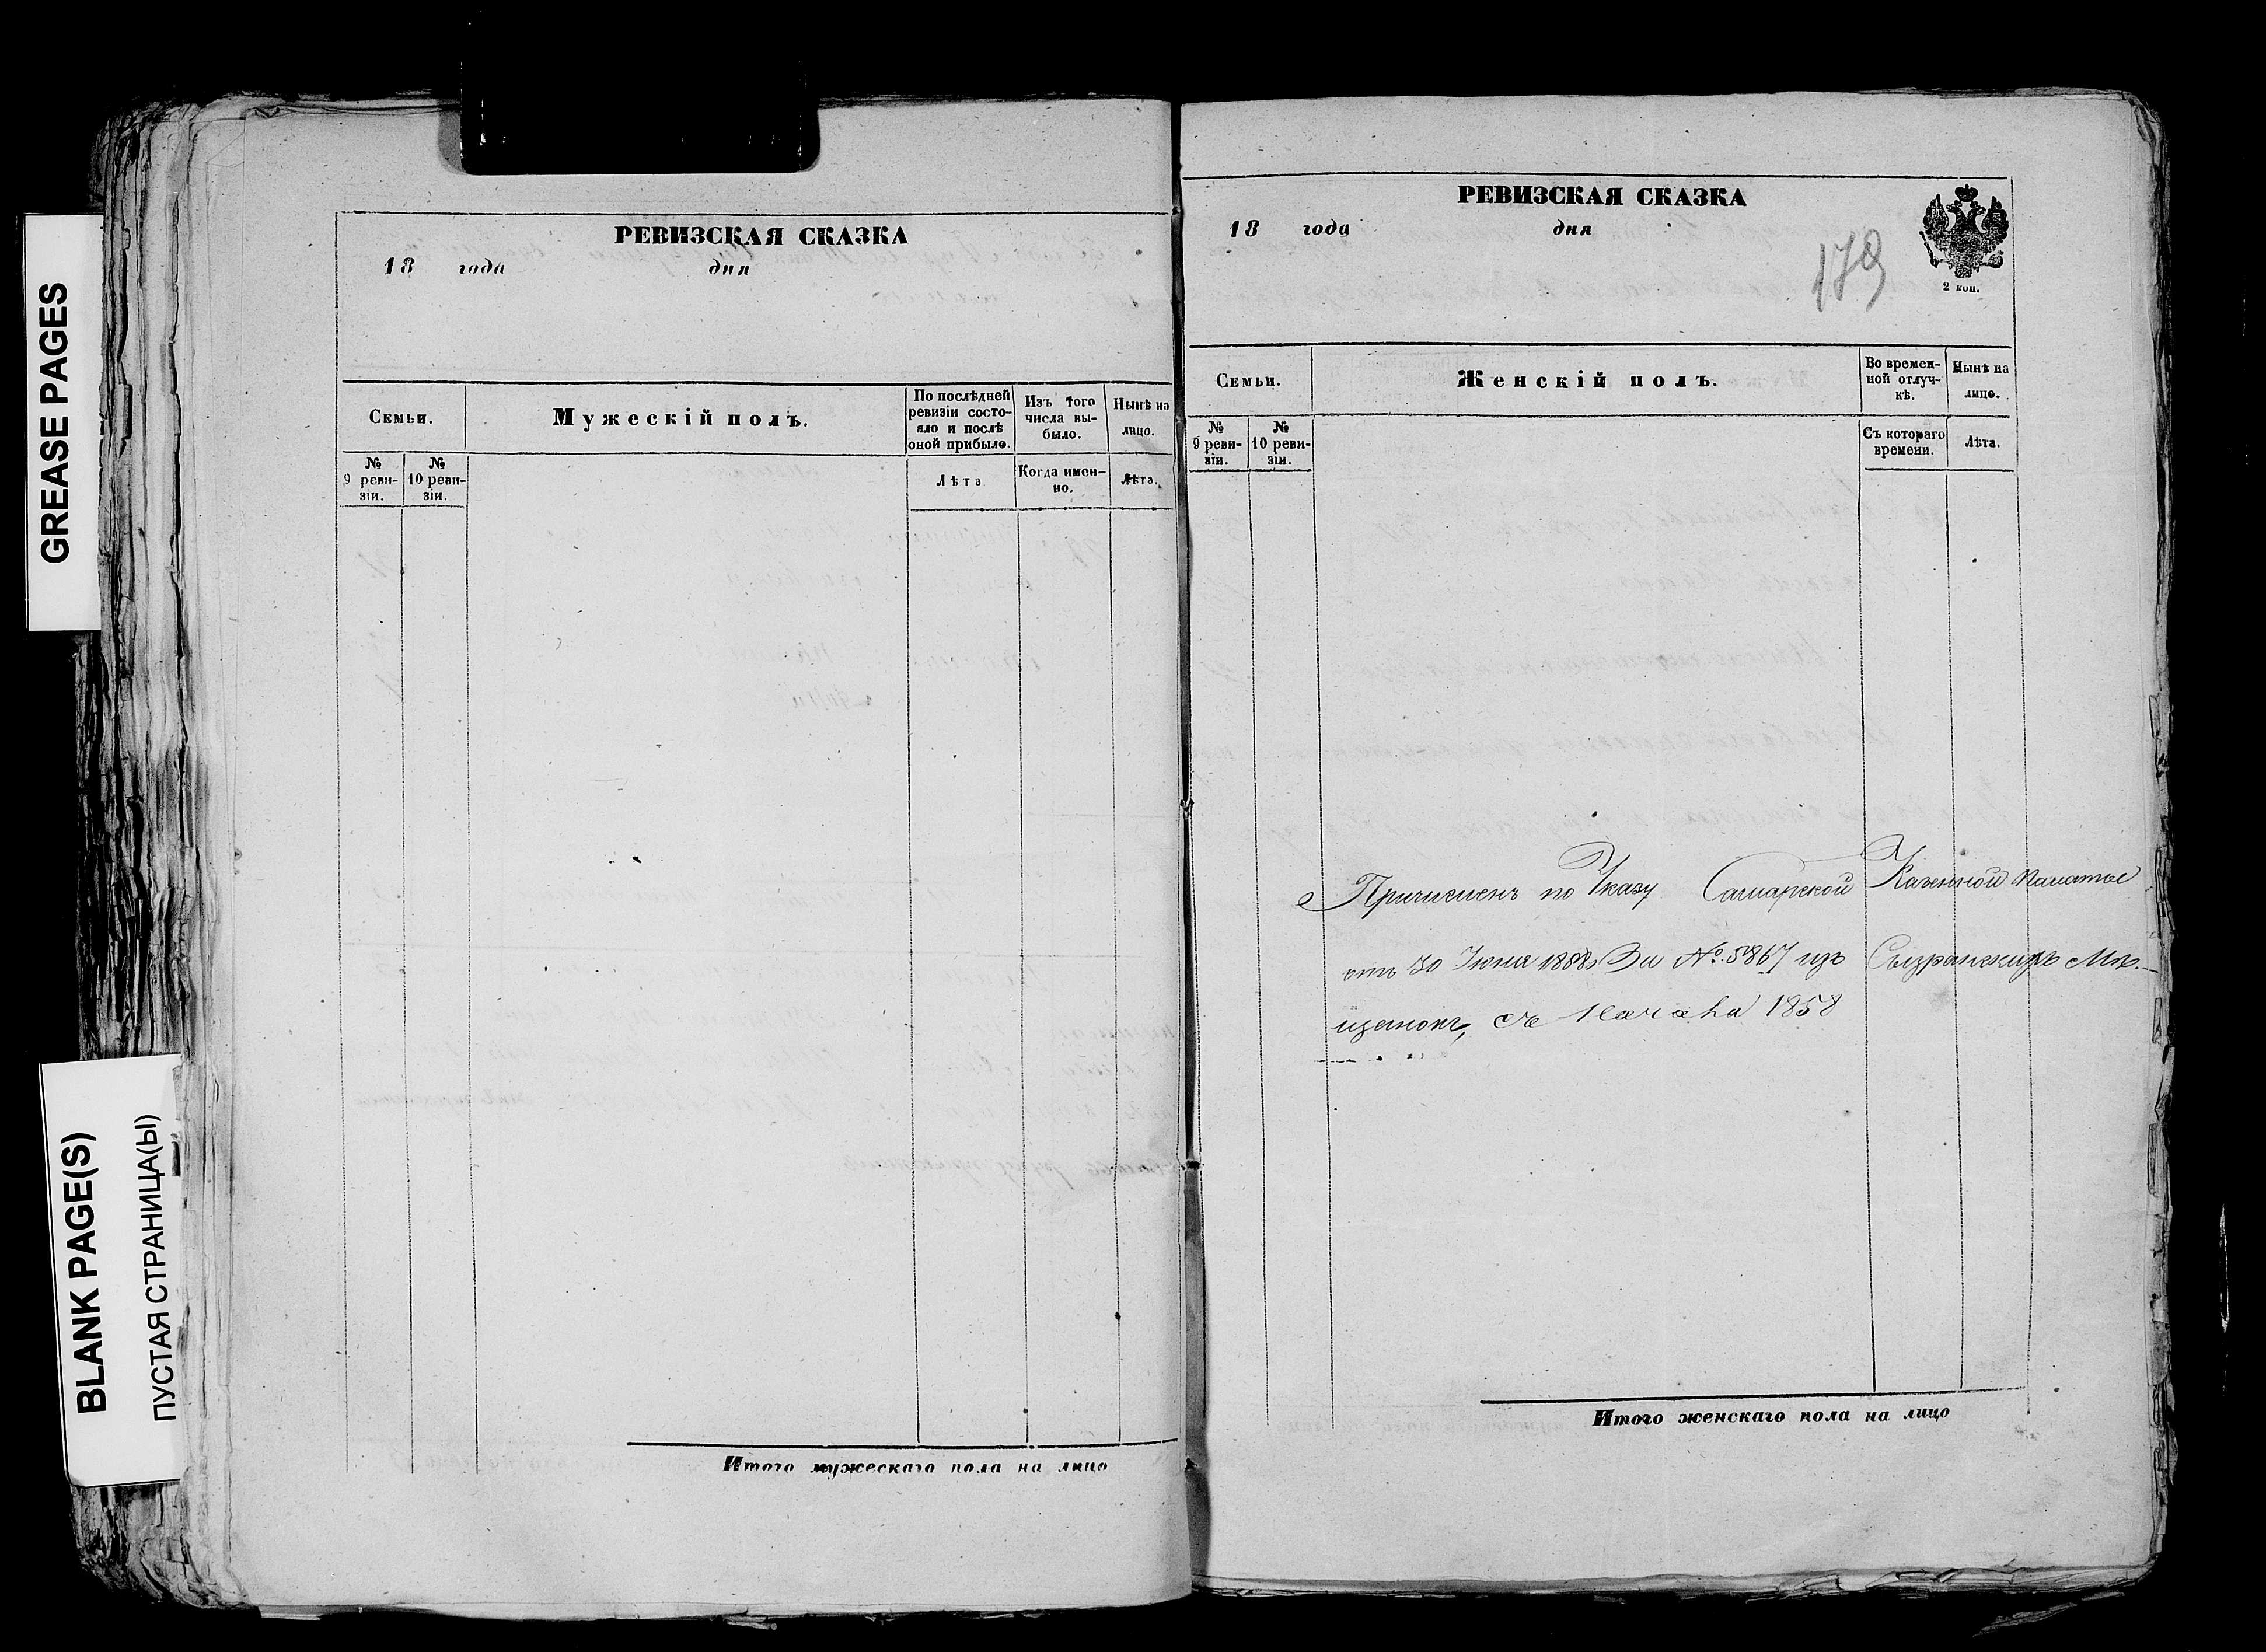 GREASE PAGES
BLANK PAGE(S)
ПУСТАЯ СТРАНИЦА(Ы)
РЕВИЗСКАЯ СКАЗКА
18 года дня
Семьи.
Мужескій полъ.
По послѣдней
ревизіи состо-
яло и послѣ
оной прибыло.
Изъ того
числа вы-
было.
Нынѣ на
лицо.
№
9 реви-
зіи.
№
10 реви-
зіи.
Лѣта
Когда имен-
но.
Лѣта.
Итого мужескаго пола на лицо
РЕВИЗСКАЯ СКАЗКА
18 года дня
179
2 коп.
Семьи.
Женскій полъ.
Во времен-
ной отлуч-
кѣ.
Нынѣ на
лицо.
№
9 реви-
зіи.
№
10 реви-
зіи.
Съ котораго
времени.
Лѣта.
Причисленъ по Указу Самарской Казенной Палаты
отъ 30 Іюня 1858 За №. 5867 изъ Сызранскихъ Мѣ-
щанокъ, съ Начала 1858
Итого женскаго пола на лицо